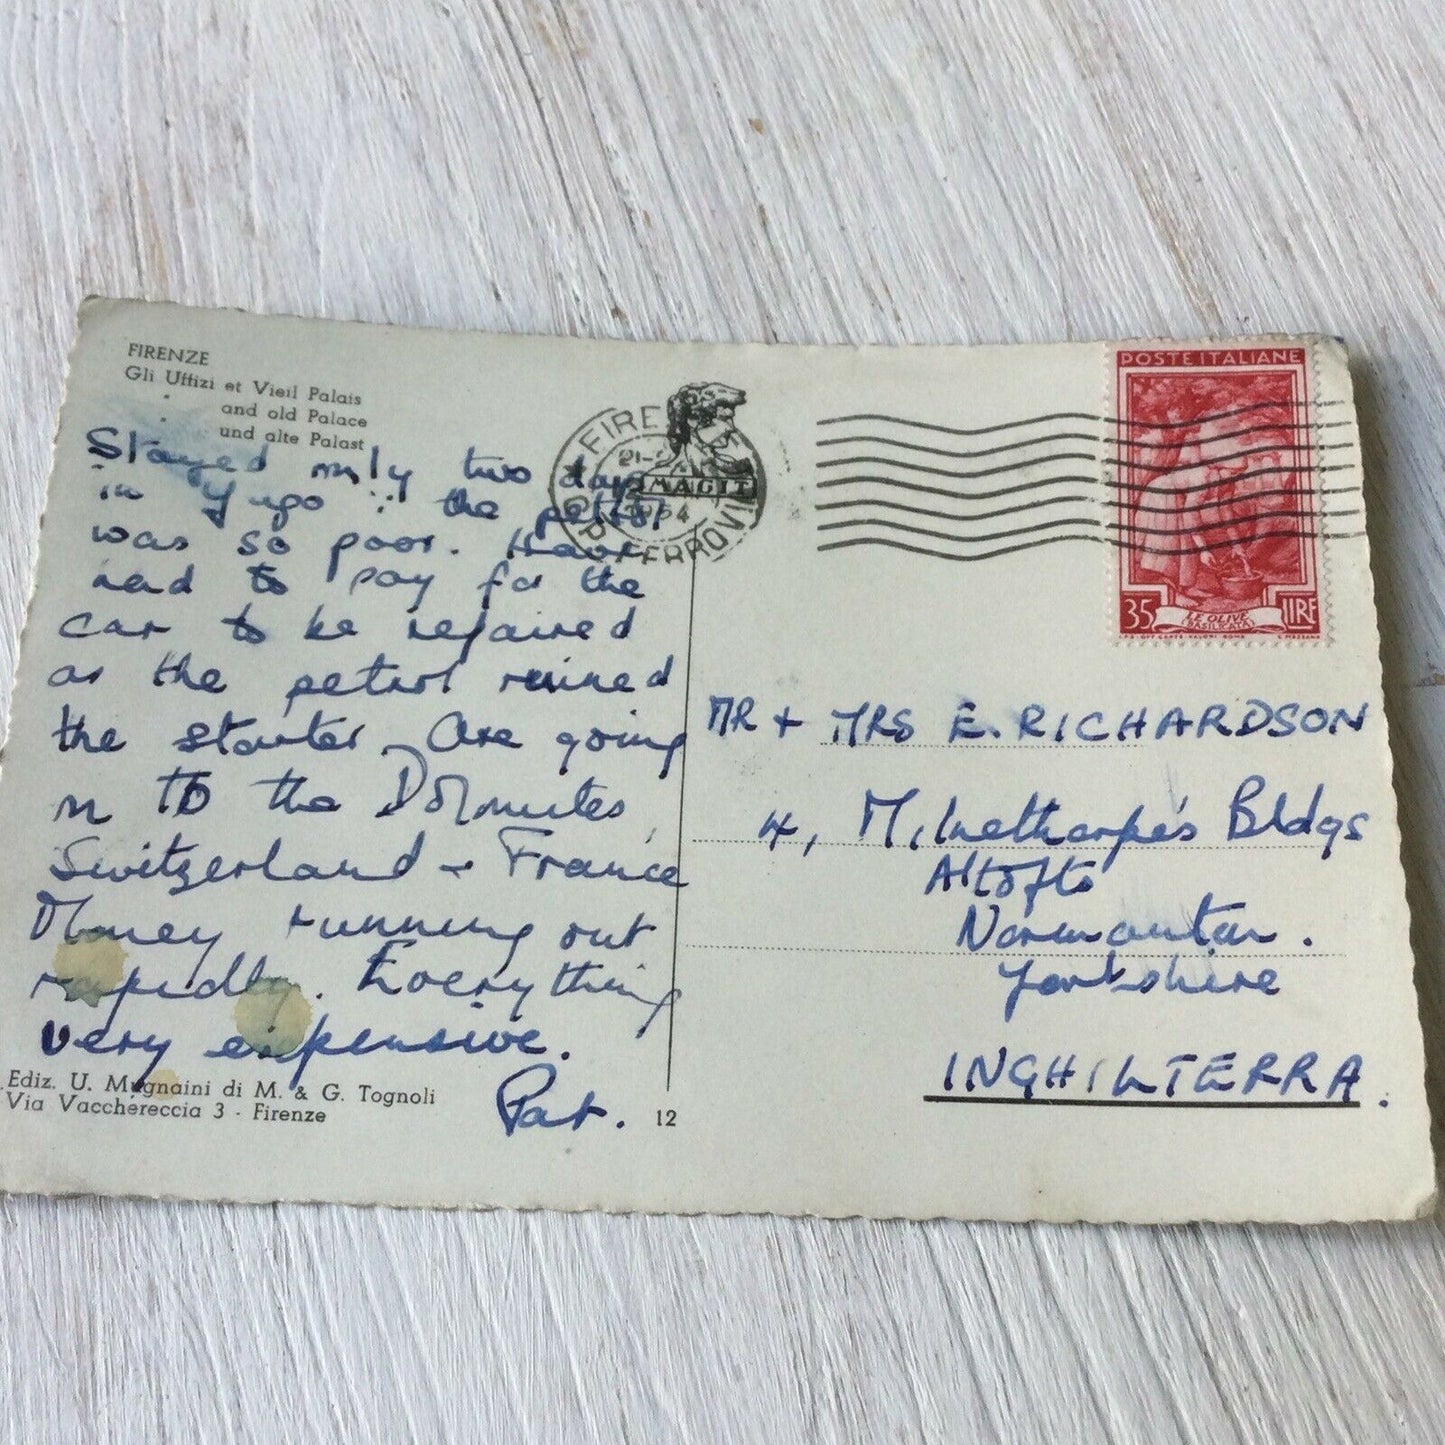 FIRENZE
Gli Uffizi et Vieil Palais
and old Palace
und alte Palast
Stayed only two days
in Yugo ∵ the petrol
was so poor. Have
had to pay for the
car to be repaired
as the petrol ruined
the starter. Are going
on to the Dolomites,
Switzerland + France
Money running out
rapidly. Everything
very expensive.
Pat.
Ediz. U. Mugnaini di M. & G. Tognoli
Via Vacchereccia 3 - Firenze
12
FIRE
21-
1954
FERROVI
POSTE ITALIANE
35 LIRE
LE OLIVE
(BASILICATA)
I.P.S. OFF. CARTE-VALORI-ROMA
C. MEZZANA
MR + MRS E. RICHARDSON
4, Milnethorpe's Bldgs
Altofts
Normanton.
Yorkshire
INGHILTERRA.